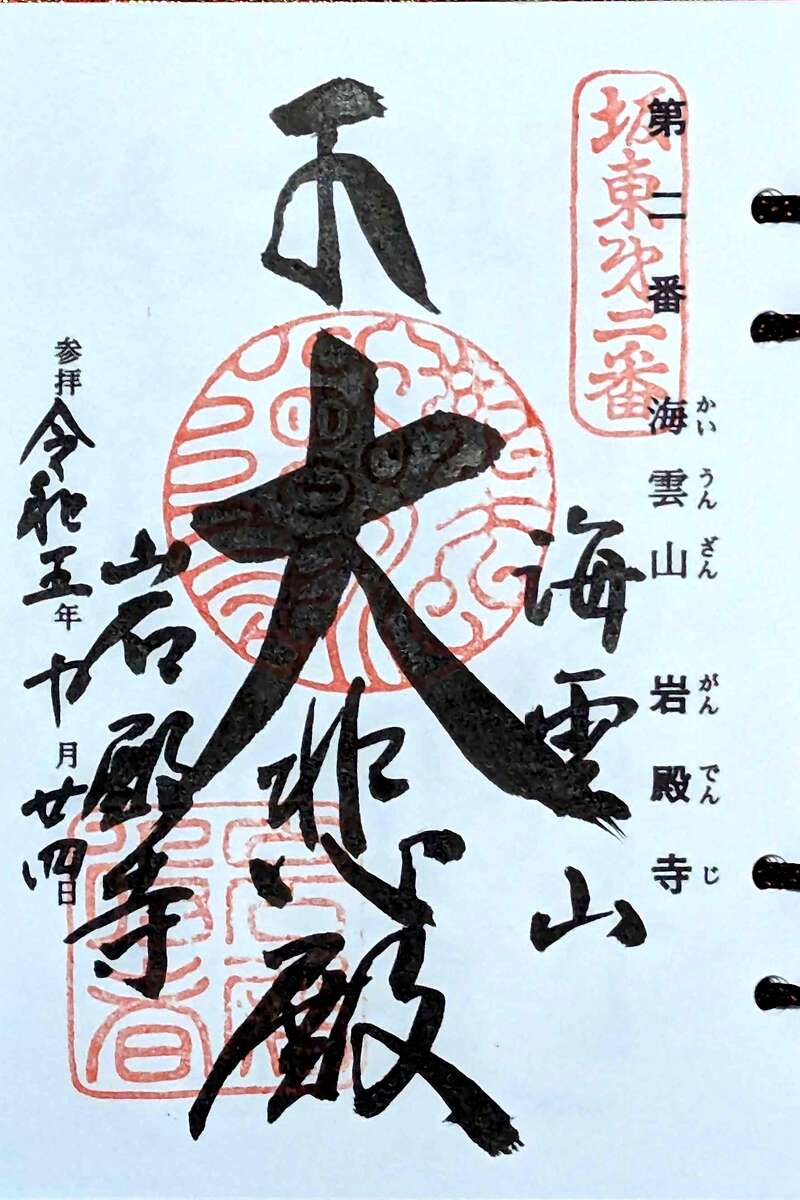 第二番 海雲山 岩殿寺
かいうんざん がんでんじ
坂東第二番
海雲山
大悲殿
岩殿寺
参拝 令和五年十月廿四日